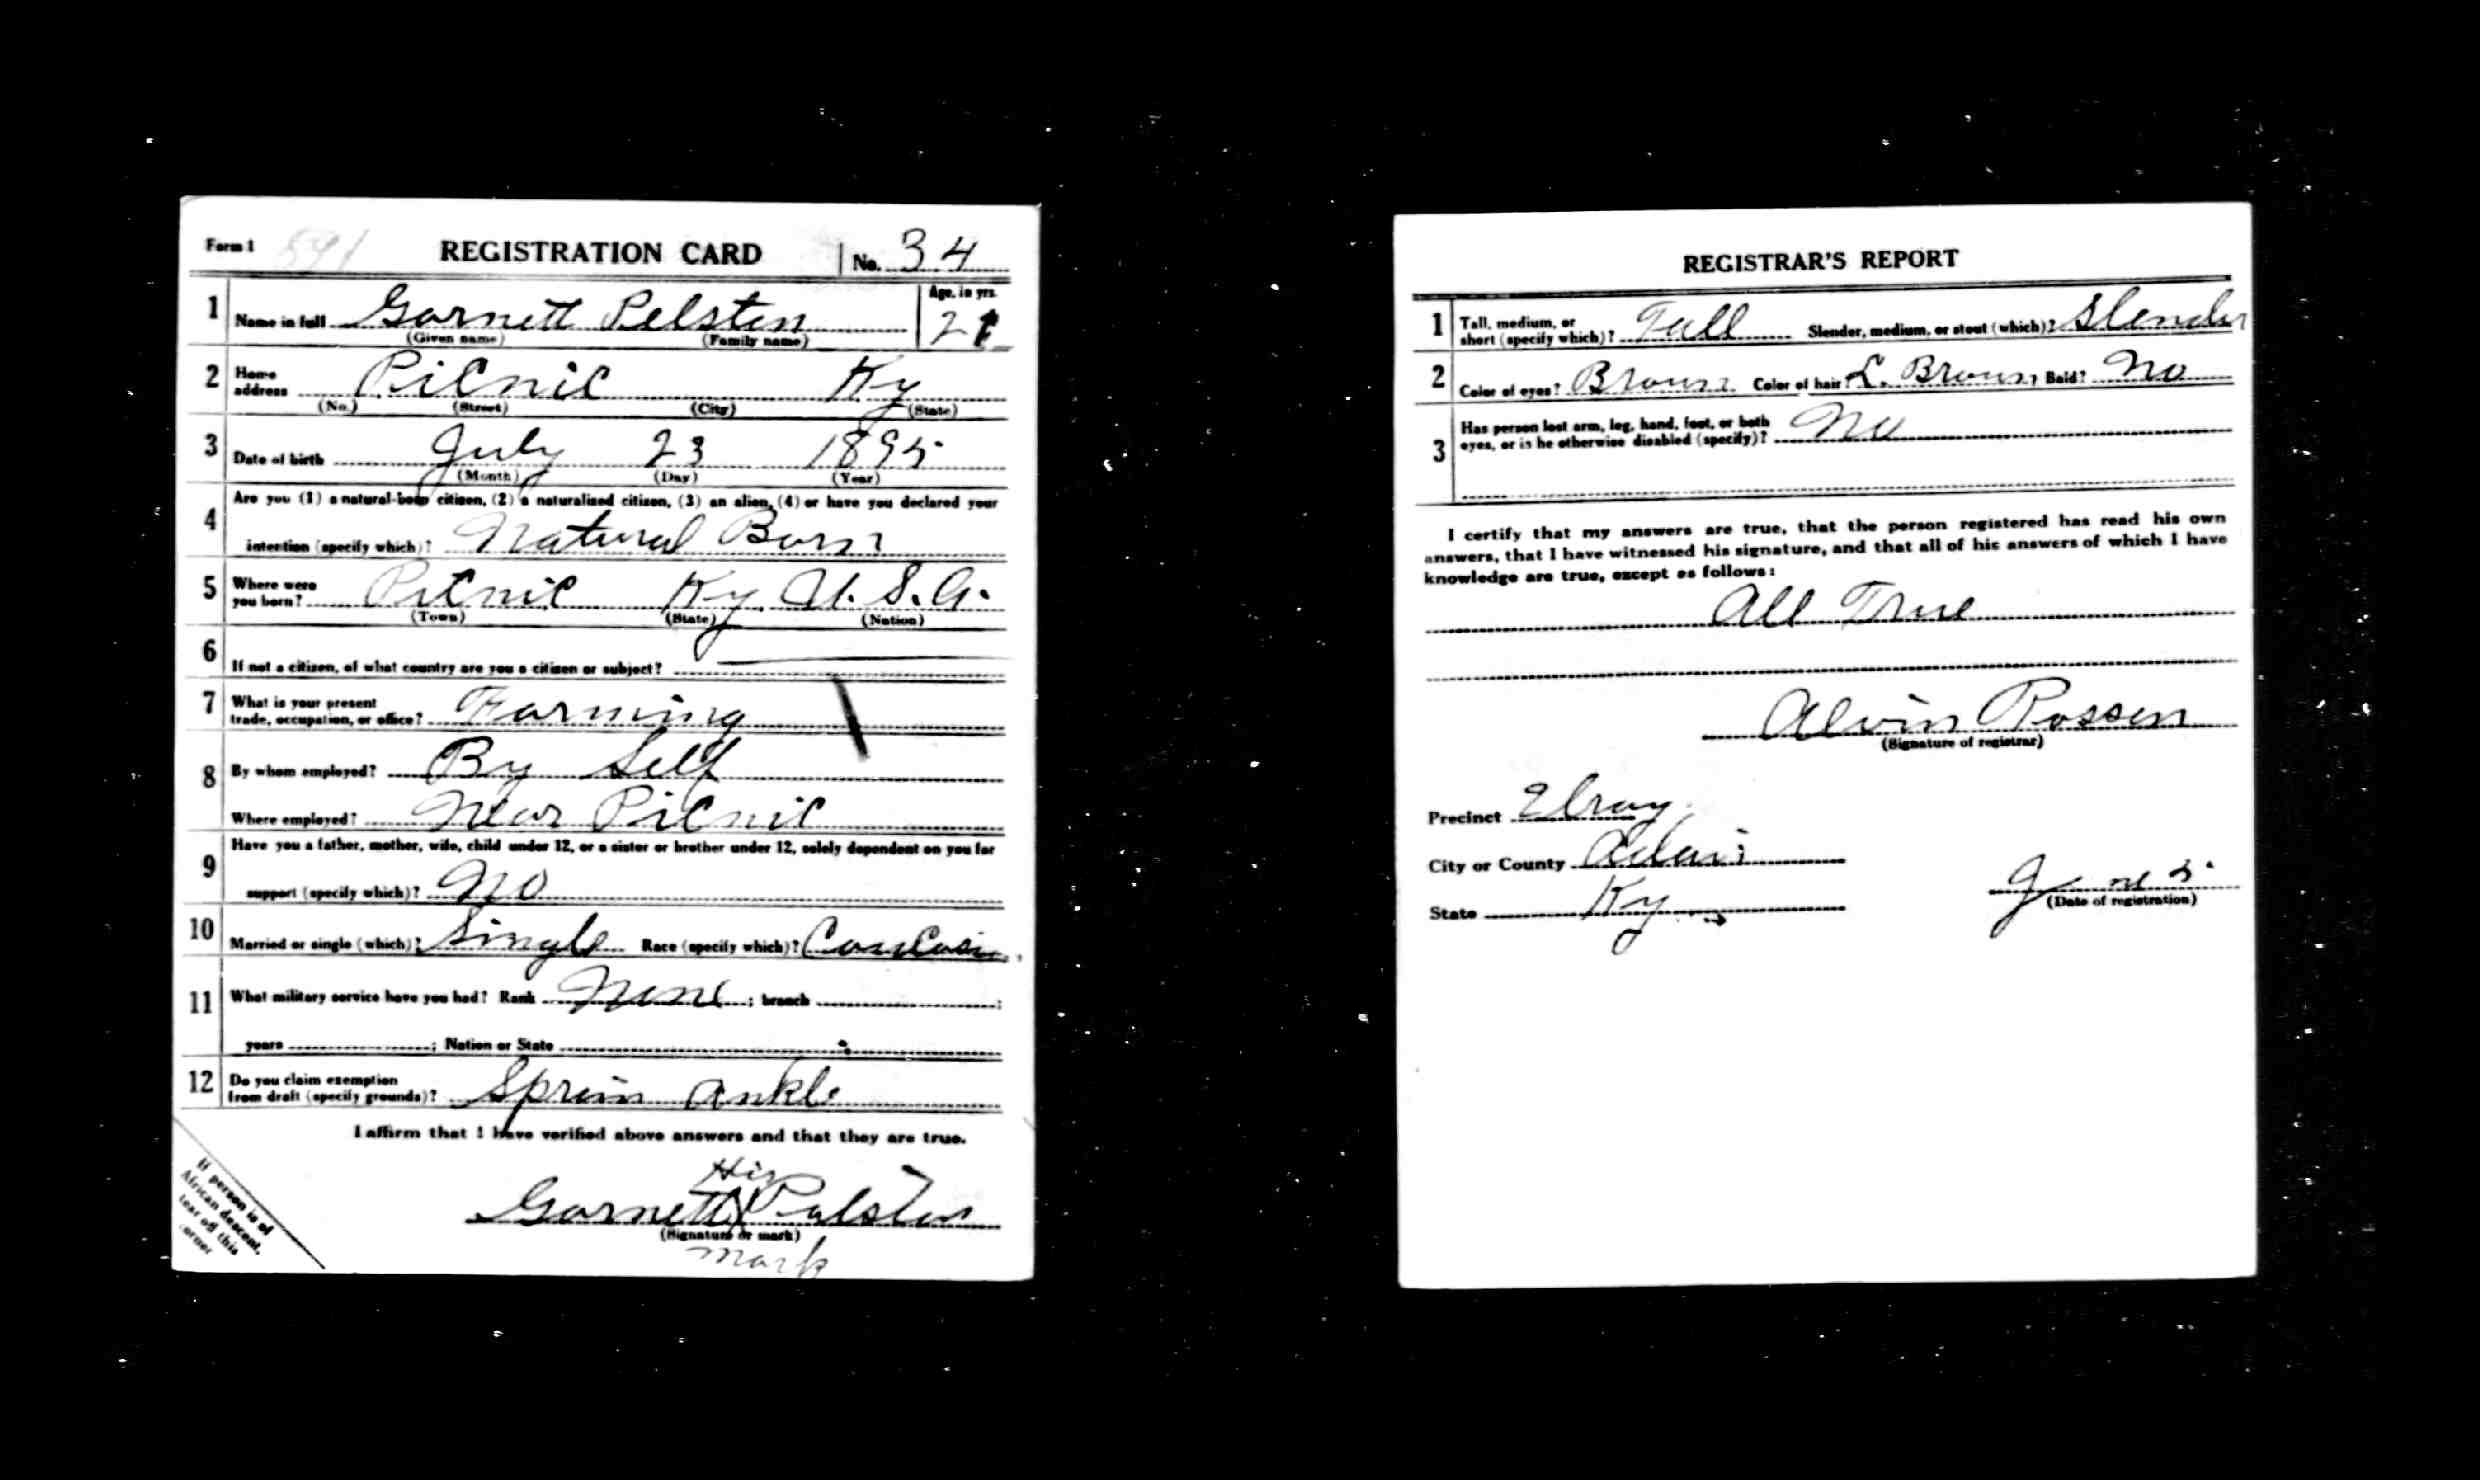 Form 1 591 REGISTRATION CARD No. 34
1 Name in full Garnett Pelston Age, in yrs. 21
(Given name) (Family name)
2 Home address Picnic Ky
(No.) (Street) (City) (State)
3 Date of birth July 23 1895
(Month) (Day) (Year)
4 Are you (1) a natural-born citizen, (2) a naturalized citizen, (3) an alien, (4) or have you declared your
intention (specify which)? Natural Born
5 Where were you born? Picnic Ky U. S. A.
(Town) (State) (Nation)
6 If not a citizen, of what country are you a citizen or subject?
7 What is your present
trade, occupation, or office? Farming
8 By whom employed? By Self
Where employed? Near Picnic
9 Have you a father, mother, wife, child under 12, or a sister or brother under 12, solely dependent on you for
support (specify which)? No
10 Married or single (which)? Single Race (specify which)? Caucasin
11 What military service have you had? Rank None ; branch ;
years ; Nation or State
12 Do you claim exemption
from draft (specify grounds)? Sprain ankle
I affirm that I have verified above answers and that they are true.
His
Garnett X Pelston
(Signature or mark)
mark
If person is of
African descent,
tear off this
corner
REGISTRAR'S REPORT
1 Tall, medium, or
short (specify which)? Tall Slender, medium, or stout (which)? Slender
2 Color of eyes? Brown Color of hair? L. Brown, Bald? No
3 Has person lost arm, leg, hand, foot, or both
eyes, or is he otherwise disabled (specify)? No
I certify that my answers are true, that the person registered has read his own
answers, that I have witnessed his signature, and that all of his answers of which I have
knowledge are true, except as follows:
All True
Alvin Rossen
(Signature of registrar)
Precinct Elroy
City or County Adair
State Ky
June 5
(Date of registration)